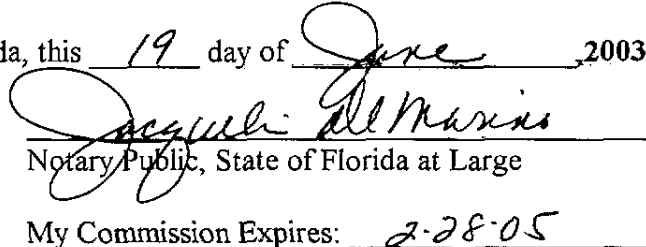 da, this 19 day of June ,2003
Jacqueli del Marino
Notary Public, State of Florida at Large
My Commission Expires: 2-28-05